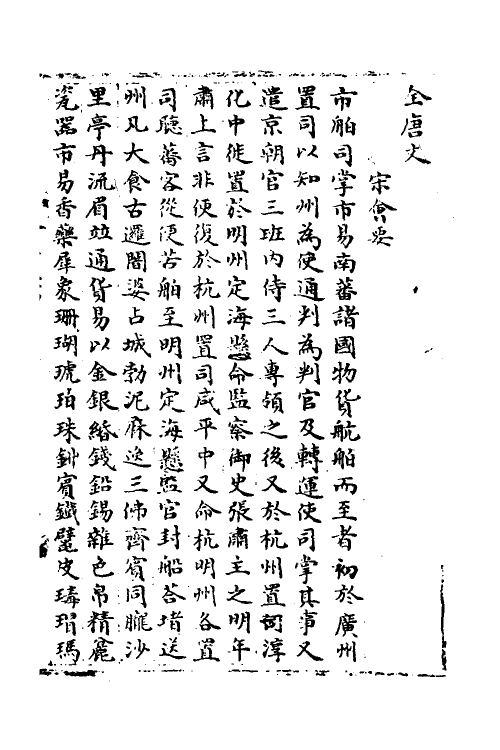 全唐文
宋會要
市舶司掌市易南蕃諸國物貨航舶而至者初於廣州
置司以知州為使通判為判官及轉運使司掌其事又
遣京朝官三班內侍三人專領之後又於杭州置司淳
化中徙置於明州定海縣命監察御史張肅主之明年
肅上言非便復於杭州置司咸平中又命杭明州各置
司聽蕃客從便若舶至明州定海縣監官封船莟堵送
州凡大食古邏闍婆占城勃泥麻逸三佛齊賓同朧沙
里亭丹流眉竝通貨易以金銀緡錢鉛錫雜色帛精麄
瓷器市易香藥犀象珊瑚琥珀珠鉡賓鐵鼊皮瑇瑁瑪